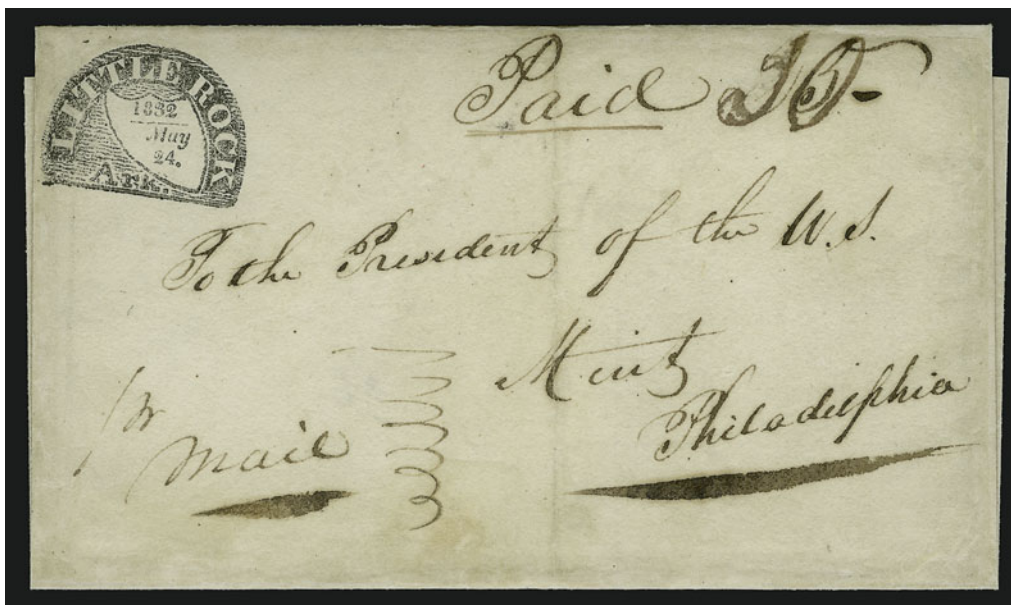 LITTLE ROCK
1832
May
24.
Ark.
Paid
To the President of the U.S.
Mint
Philadelphia
pr
Mail